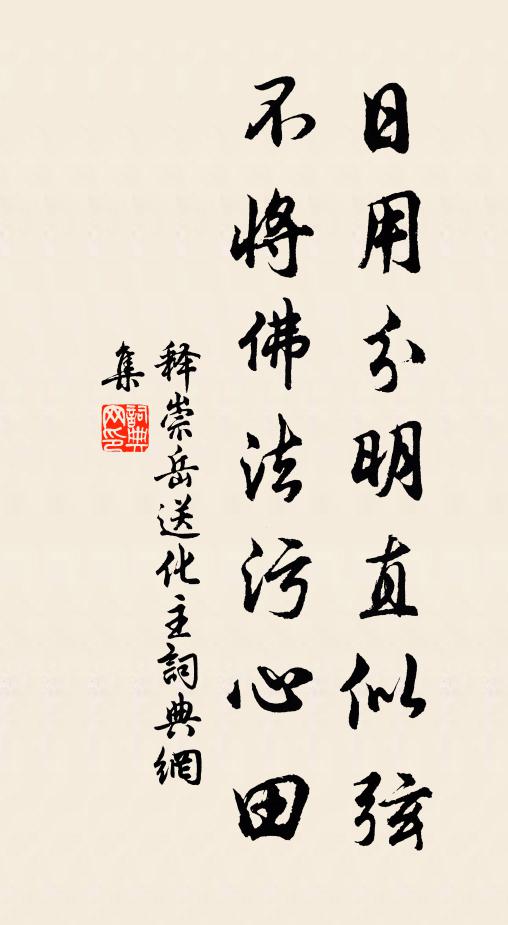 日用分明直似弦
不將佛法污心田
释崇岳送化主詞典網
集
詞典網印